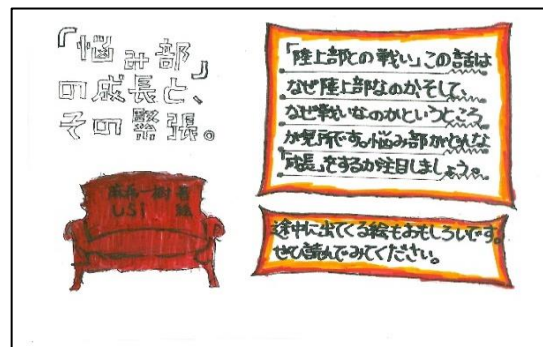 「悩み部」
の成長と、
その緊張。
麻希一樹 著
usi 絵
「陸上部との戦い」この話は
なぜ陸上部なのか、そして、
なぜ戦いなのかというところ
が見所です。悩み部がどんな
「成長」をするか注目しましょう。
途中に出てくる絵もおもしろいです。
ぜひ読んでみてください。